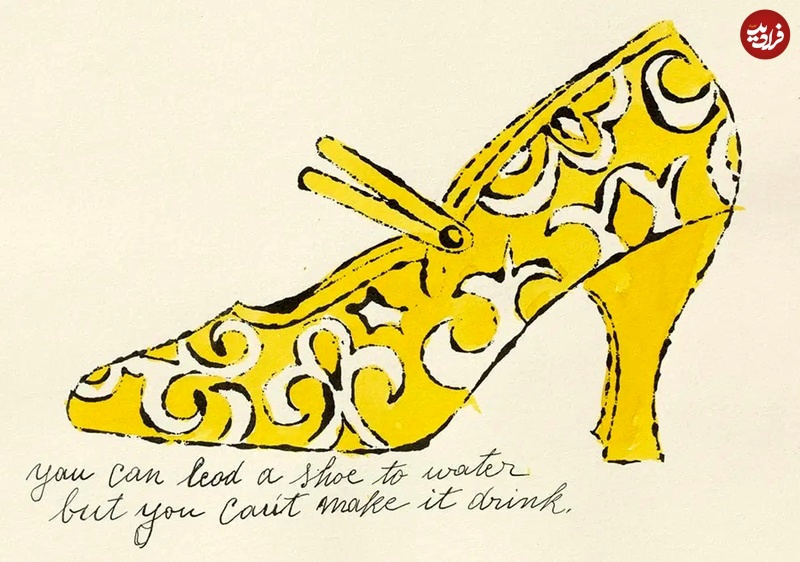 فرادید
you can lead a shoe to water
but you can't make it drink.